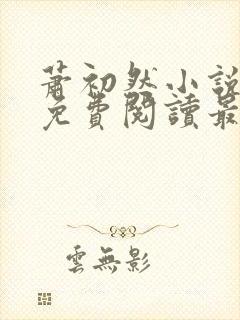 蕭初然小說
免費閱讀最
雲無影